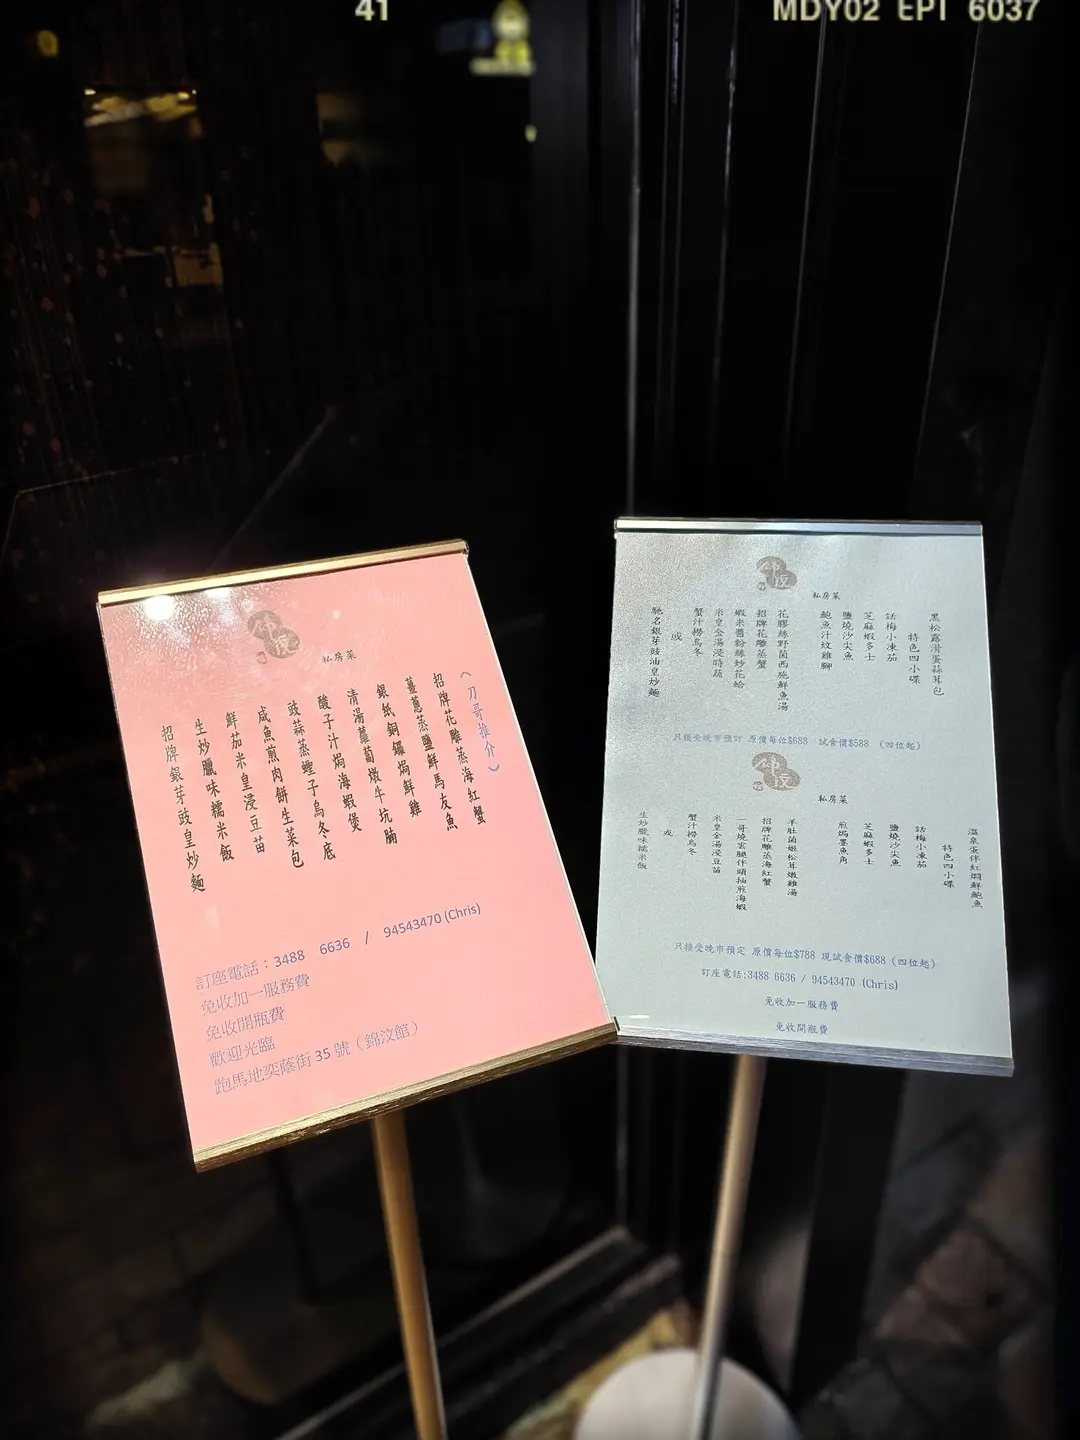 41
MDY02 EPI 6037
私房菜
（刀哥推介）
招牌花雕蒸海紅蟹
薑蔥蒸鹽鮮馬友魚
銀紙銅鑼焗鮮雞
清湯蘿蔔燉牛坑腩
酸子汁焗海蝦煲
豉蒜蒸蟶子烏冬底
咸魚煎肉餅生菜包
鮮茄米皇浸豆苗
生炒臘味糯米飯
招牌銀芽豉皇炒麵
訂座電話：3488 6636 / 94543470 (Chris)
免收加一服務費
免收開瓶費
歡迎光臨
跑馬地奕蔭街 35 號（錦汶館）
私房菜
黑松露滑蛋蒜茸包
特色四小碟
話梅小凍茄
芝麻蝦多士
鹽燒沙尖魚
鮑魚汁炆雞腳
花膠絲野菌西施鮮魚湯
招牌花雕蒸蟹
蝦米醬粉絲炒花蛤
米皇金湯浸時蔬
蟹汁撈烏冬
或
馳名銀芽豉油皇炒麵
只接受晚市預訂 原價每位$688 試食價$588 (四位起)
私房菜
溫泉蛋伴紅燜鮮鮑魚
特色四小碟
話梅小凍茄
鹽燒沙尖魚
芝麻蝦多士
煎焗墨魚角
羊肚菌姬松茸燉雞湯
招牌花雕蒸海紅蟹
一哥燒雲腿伴頭抽煎海蝦
米皇金湯浸豆苗
蟹汁撈烏冬
或
生炒臘味糯米飯
只接受晚市預定 原價每位$788 現試食價$688 (四位起)
訂座電話:3488 6636 / 94543470 (Chris)
免收加一服務費
免收開瓶費